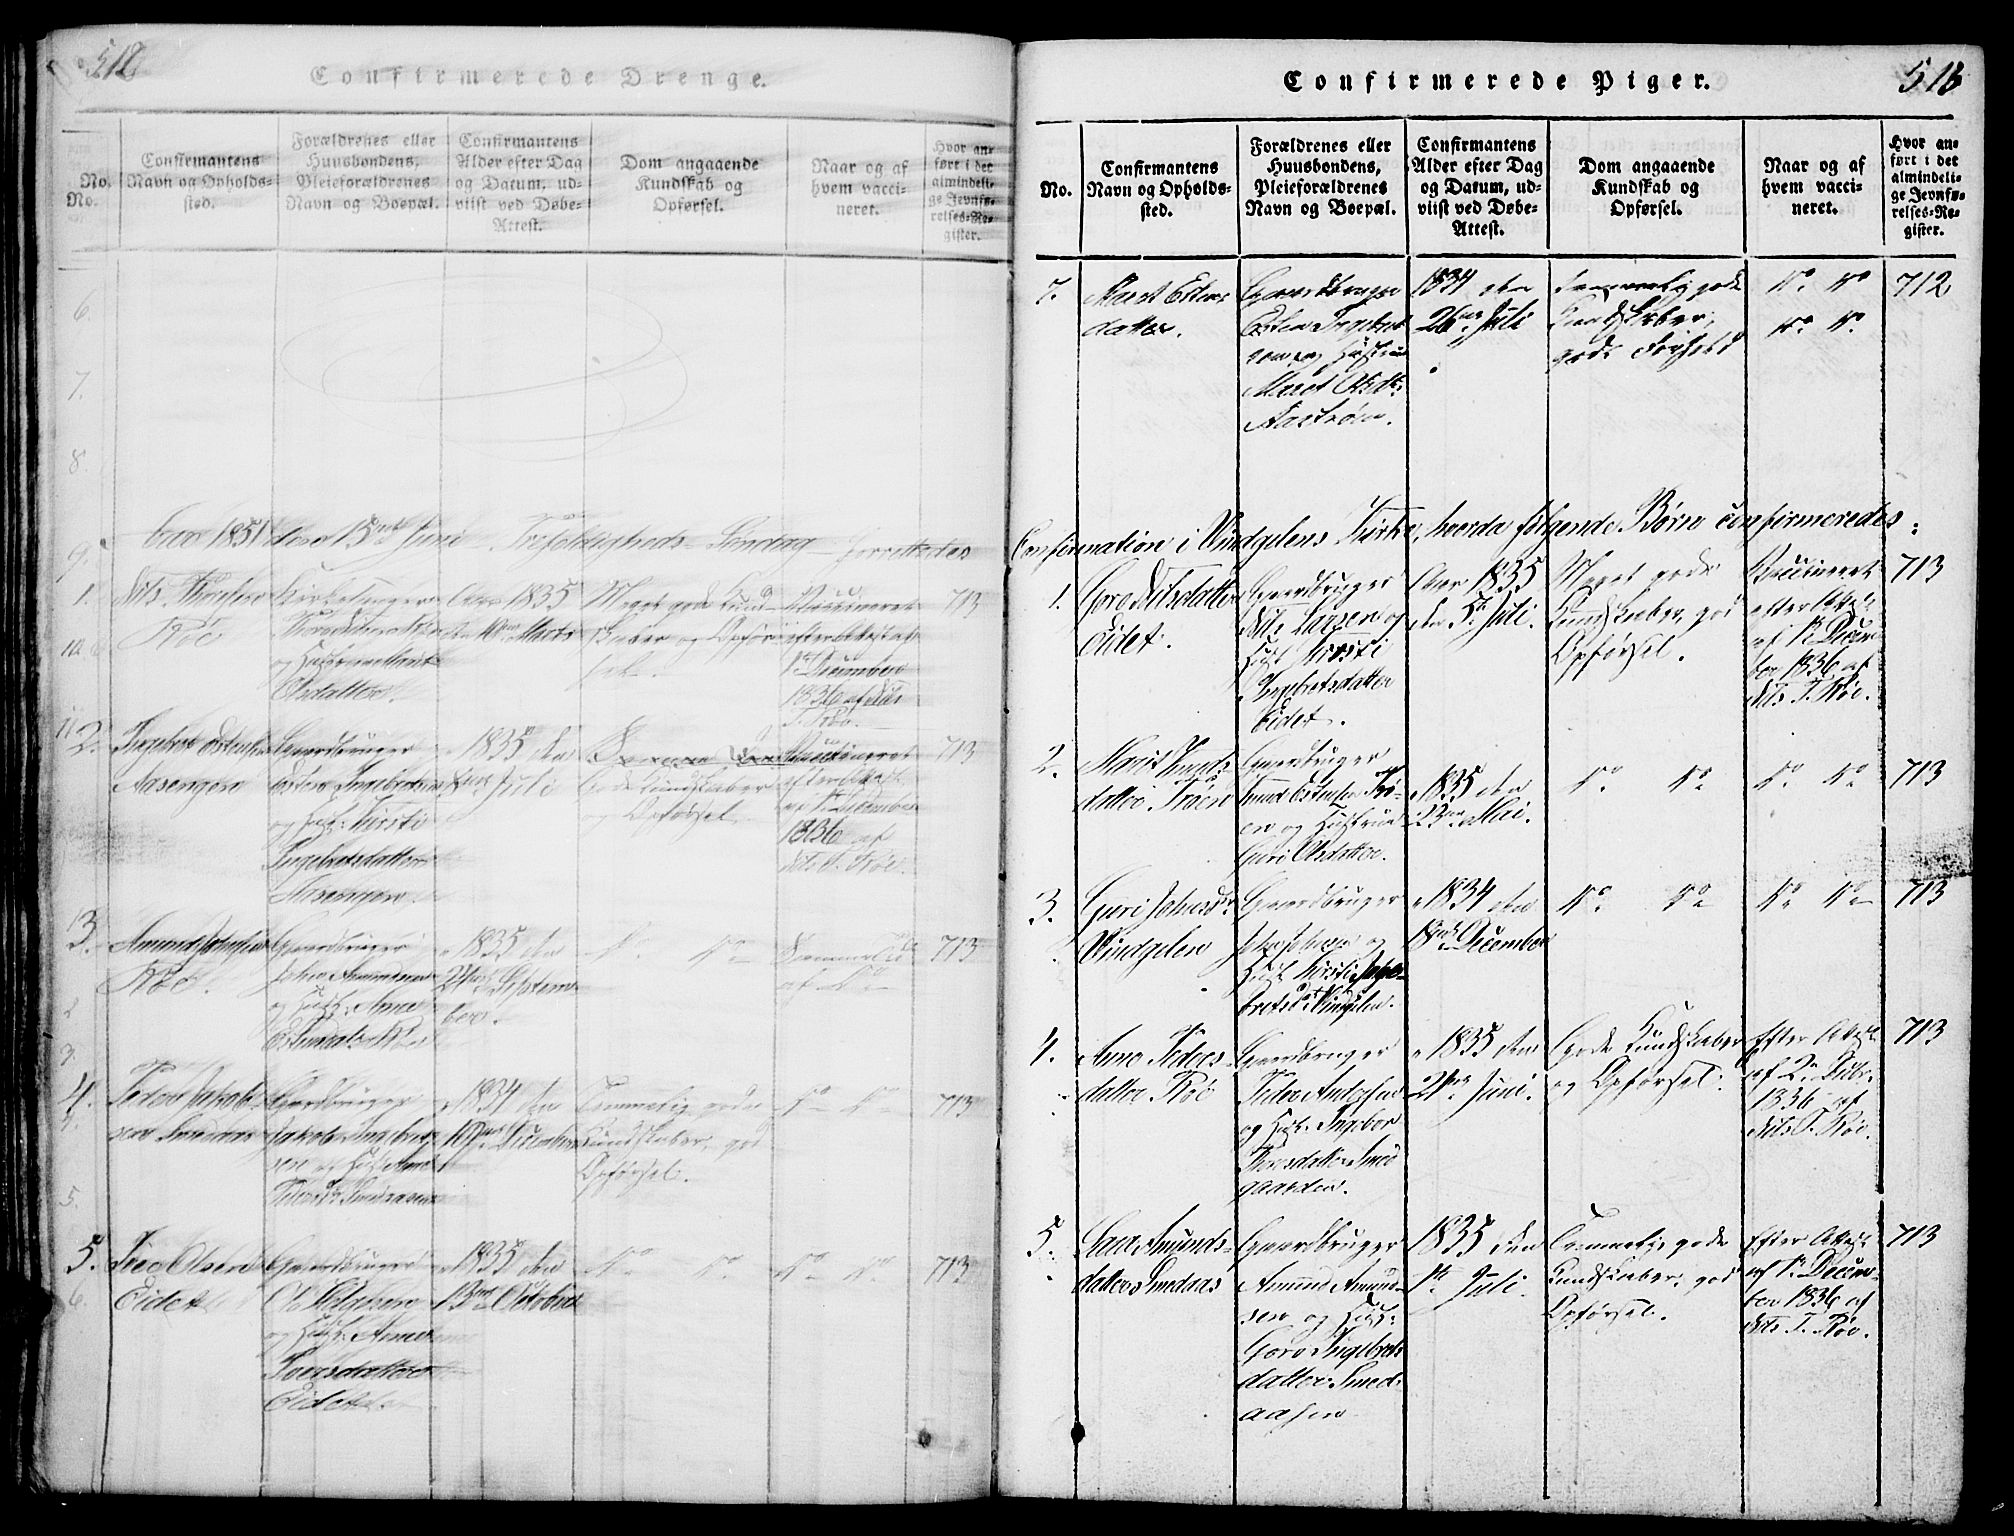 512
Confirmerede Drenge.
No.
No.
Confirmantens
Navn og Opholds-
sted.
Forældrenes eller
Huusbondens,
Pleieforældrenes
Navn og Boepæl.
Confirmantens
Alder efter Dag
og Datum, ud-
viist ved Døbe-
Attest.
Dom angaaende
Kundskab og
Opførsel.
Naar og af
hvem vacci-
neret.
Hvor an-
ført i det
almindeli-
ge Jevnfø-
relses-Re-
gister.
6.
7.
8.
9.
Aar 1851 den 15de Juni Trefoldigheds-Søndag forrettedes
1.
Nils Thoresen
Røe
Kirkesanger
Thore Nilsen Røe
og Hustrue Marit
Olsdatter.
Aar 1835
den 10de Marts
Meget gode Kund-
skaber og Opfør-
sel.
Vaccineret
efter Attest af
1ste December
1836 af Nils
T. Røe.
713
2.
Ingebret Estensen
Aasengen
Gaardbruger
Esten Ingebretsen
og Hust: Kirsti
Ingebretsdatter
Aasengen.
1835 den
Juli
Gode Kundskaber
og Opførsel.
Vaccineret
efter Attest
af 1ste December
1836 af
Nils T. Røe.
713
3.
Amund Johnsen
Røe.
Gaardbruger
John Amundsen
og Hust: Anne
Estensdatter Røe
1835 den
21de Septem-
ber.
Do Do
af Do
713
4.
Peder Jakob-
sen Smedaas
Gaardbruger
Jakob
sen og Hust: Anne
Pedersdr Smedaasen
1834 den
10de December
Temmelig gode
Kundskaber, god
Opførsel.
Do Do
713
5.
Iver Olsen
Eidet
Gaardbruger
Ol Helgesen
og Hust: Anne
Iversdatter
Eidet.
1835 den
13de October
Do Do
Do Do
713
Confirmerede Piger.
513
No.
Confirmantens
Navn og Opholds-
sted.
Forældrenes eller
Huusbondens,
Pleieforældrenes
Navn og Boepæl.
Confirmantens
Alder efter Dag
og Datum, ud-
viist ved Døbe-
Attest.
Dom angaaende
Kundskab og
Opførsel.
Naar og af
hvem vacci-
neret.
Hvor an-
ført i det
almindeli-
ge Jevnfø-
relses-Re-
gister.
7.
Marit Estens
datter.
Gaardbruger
Esten Ingebret
sen og Hustrue
Marit Olsdtr
1834 den
26de Juli
Temmelig gode
Kundskaber,
gode Forhold
Do Do
Do Do
712
Confirmation i Vindgelens Kirke, hvorda følgende Børn confirmeredes:
1.
Goro Nilsdatter
Eidet.
Gaardbruger
Nils Larsen og
Hust Kirsti
Ingebretsdatter
Eidet.
Aar 1835
den 5te Juli.
Meget gode
Kundskaber, god
Opførsel.
Vaccineret
efter Attest
af 1ste Decem
ber 1836 af
Nils T. Røe.
713
2.
Marit Knuds-
datter Trøen
Gaardbruger
Knud Estensen Trø-
en og Hustrue
Guri Olsdatter.
1835 den
23de Mai.
Do Do
Do Do
713
3.
Guri Johnsdr
Vindgelen
Gaardbruger
og
Hust Kirsti Inge-
bretsdtr Vindgelen.
1834 den
18de December
Do Do
Do Do
713
4.
Anne Peders-
datter Røe
Gaardbruger
Peder Andersen
og Hust: Ingebor
Thoresdatter Smed
gaarden.
1835 den
21de Juni.
Gode Kundskaber
og Opførsel.
Efter Attest
af 2de Decbr.
1836 af
Nils T. Røe.
713
5.
Amunds-
datter Smedaas
Gaardbruger
Amund Amund-
sen og Hust:
Goro Ingebrets
datter Smed-
aasen
1835 den
1ste Juli.
Temmelig gode
Kundskaber, god
Opførsel.
Efter Attest
af 1ste Decem-
ber 1836 af
Nils T. Røe.
713